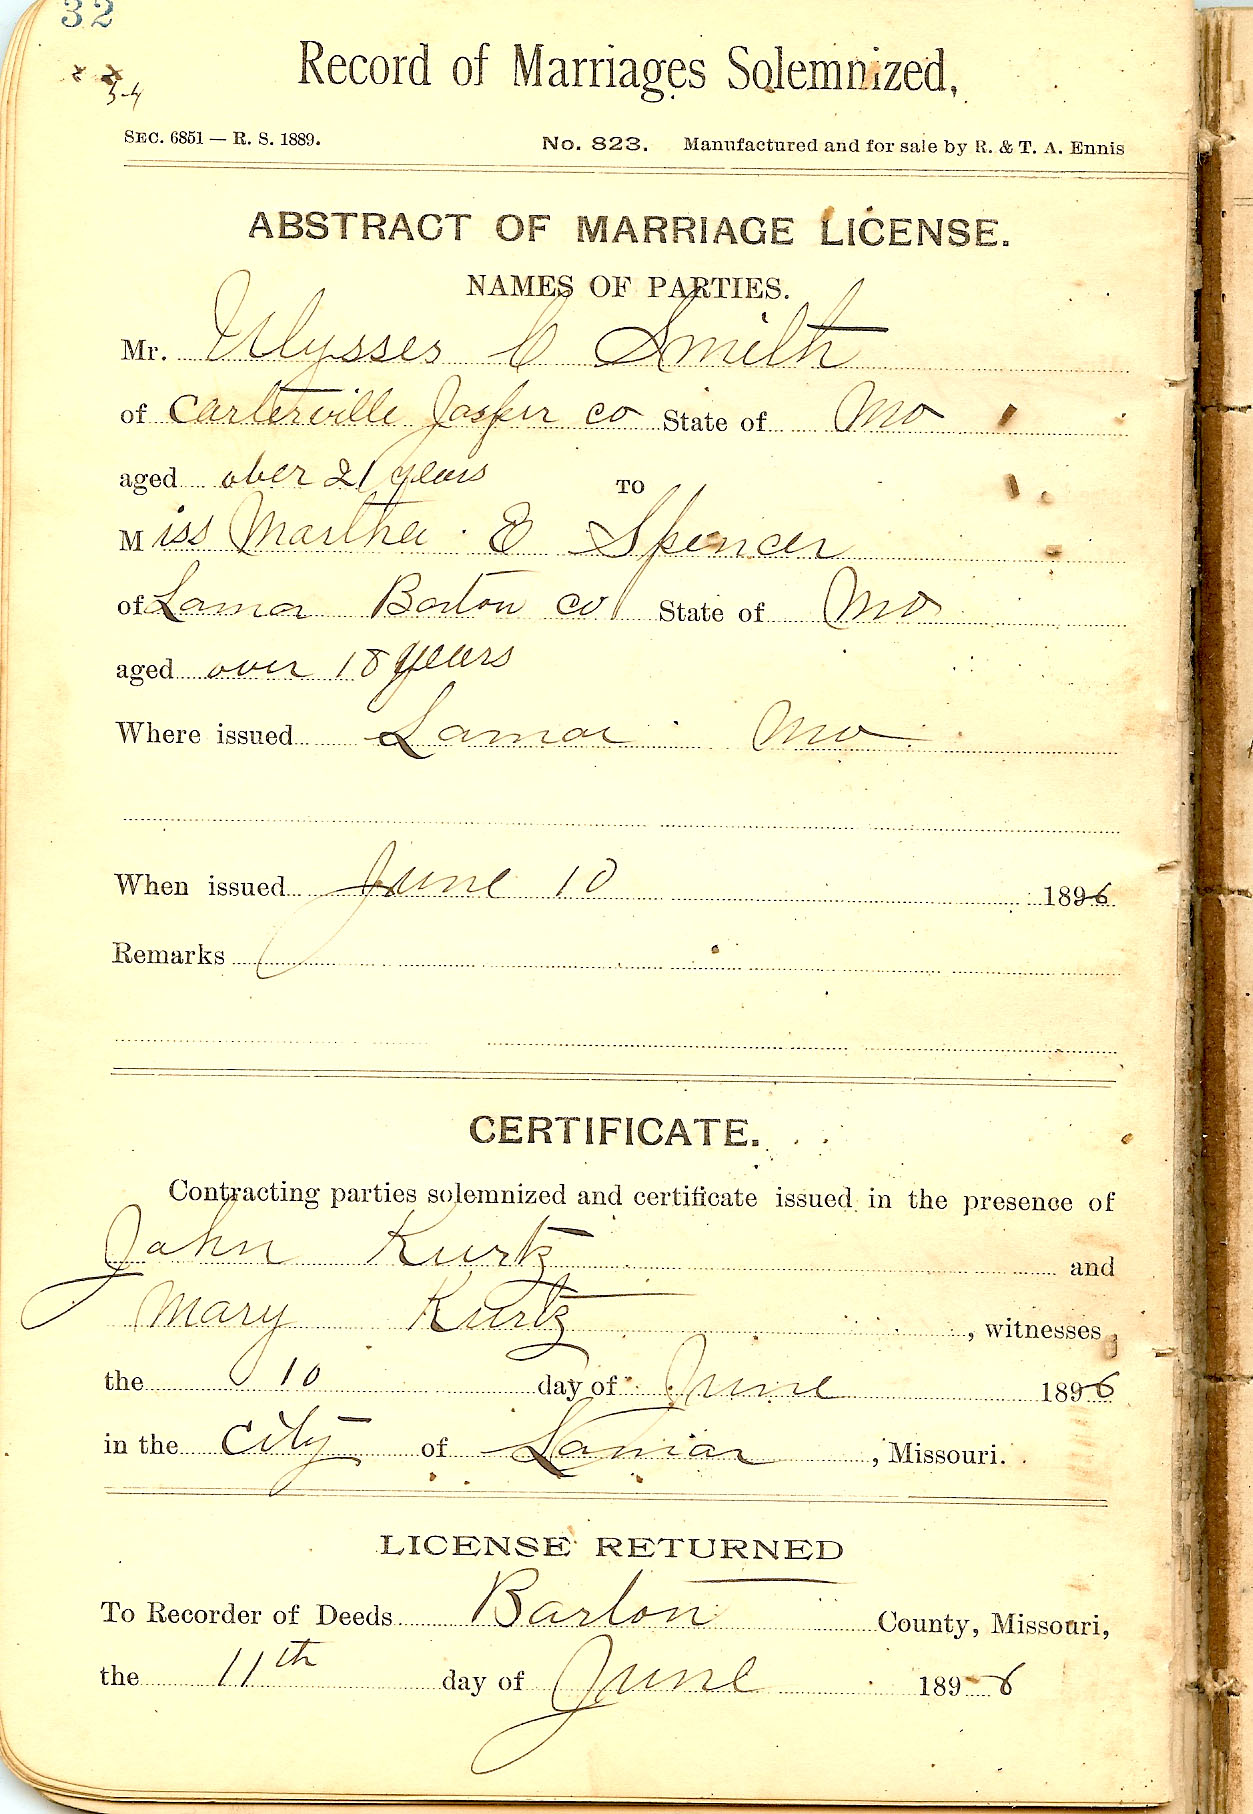 32
Record of Marriages Solemnized,
SEC. 6851 — R. S. 1889. No. 823. Manufactured and for sale by R. & T. A. Ennis
ABSTRACT OF MARRIAGE LICENSE.
NAMES OF PARTIES.
Mr. Ulysses C Smith
of Carterville Jasper co State of Mo
aged over 21 years TO
Miss Martha E Spencer
of Lamar Barton co State of Mo
aged over 18 years
Where issued Lamar Mo
When issued June 10 1896
Remarks
CERTIFICATE.
Contracting parties solemnized and certificate issued in the presence of
John Kurtz and
Mary Kurtz, witnesses,
the 10 day of June 1896
in the City of Lamar, Missouri.
LICENSE RETURNED
To Recorder of Deeds Barton County, Missouri,
the 11th day of June 1896